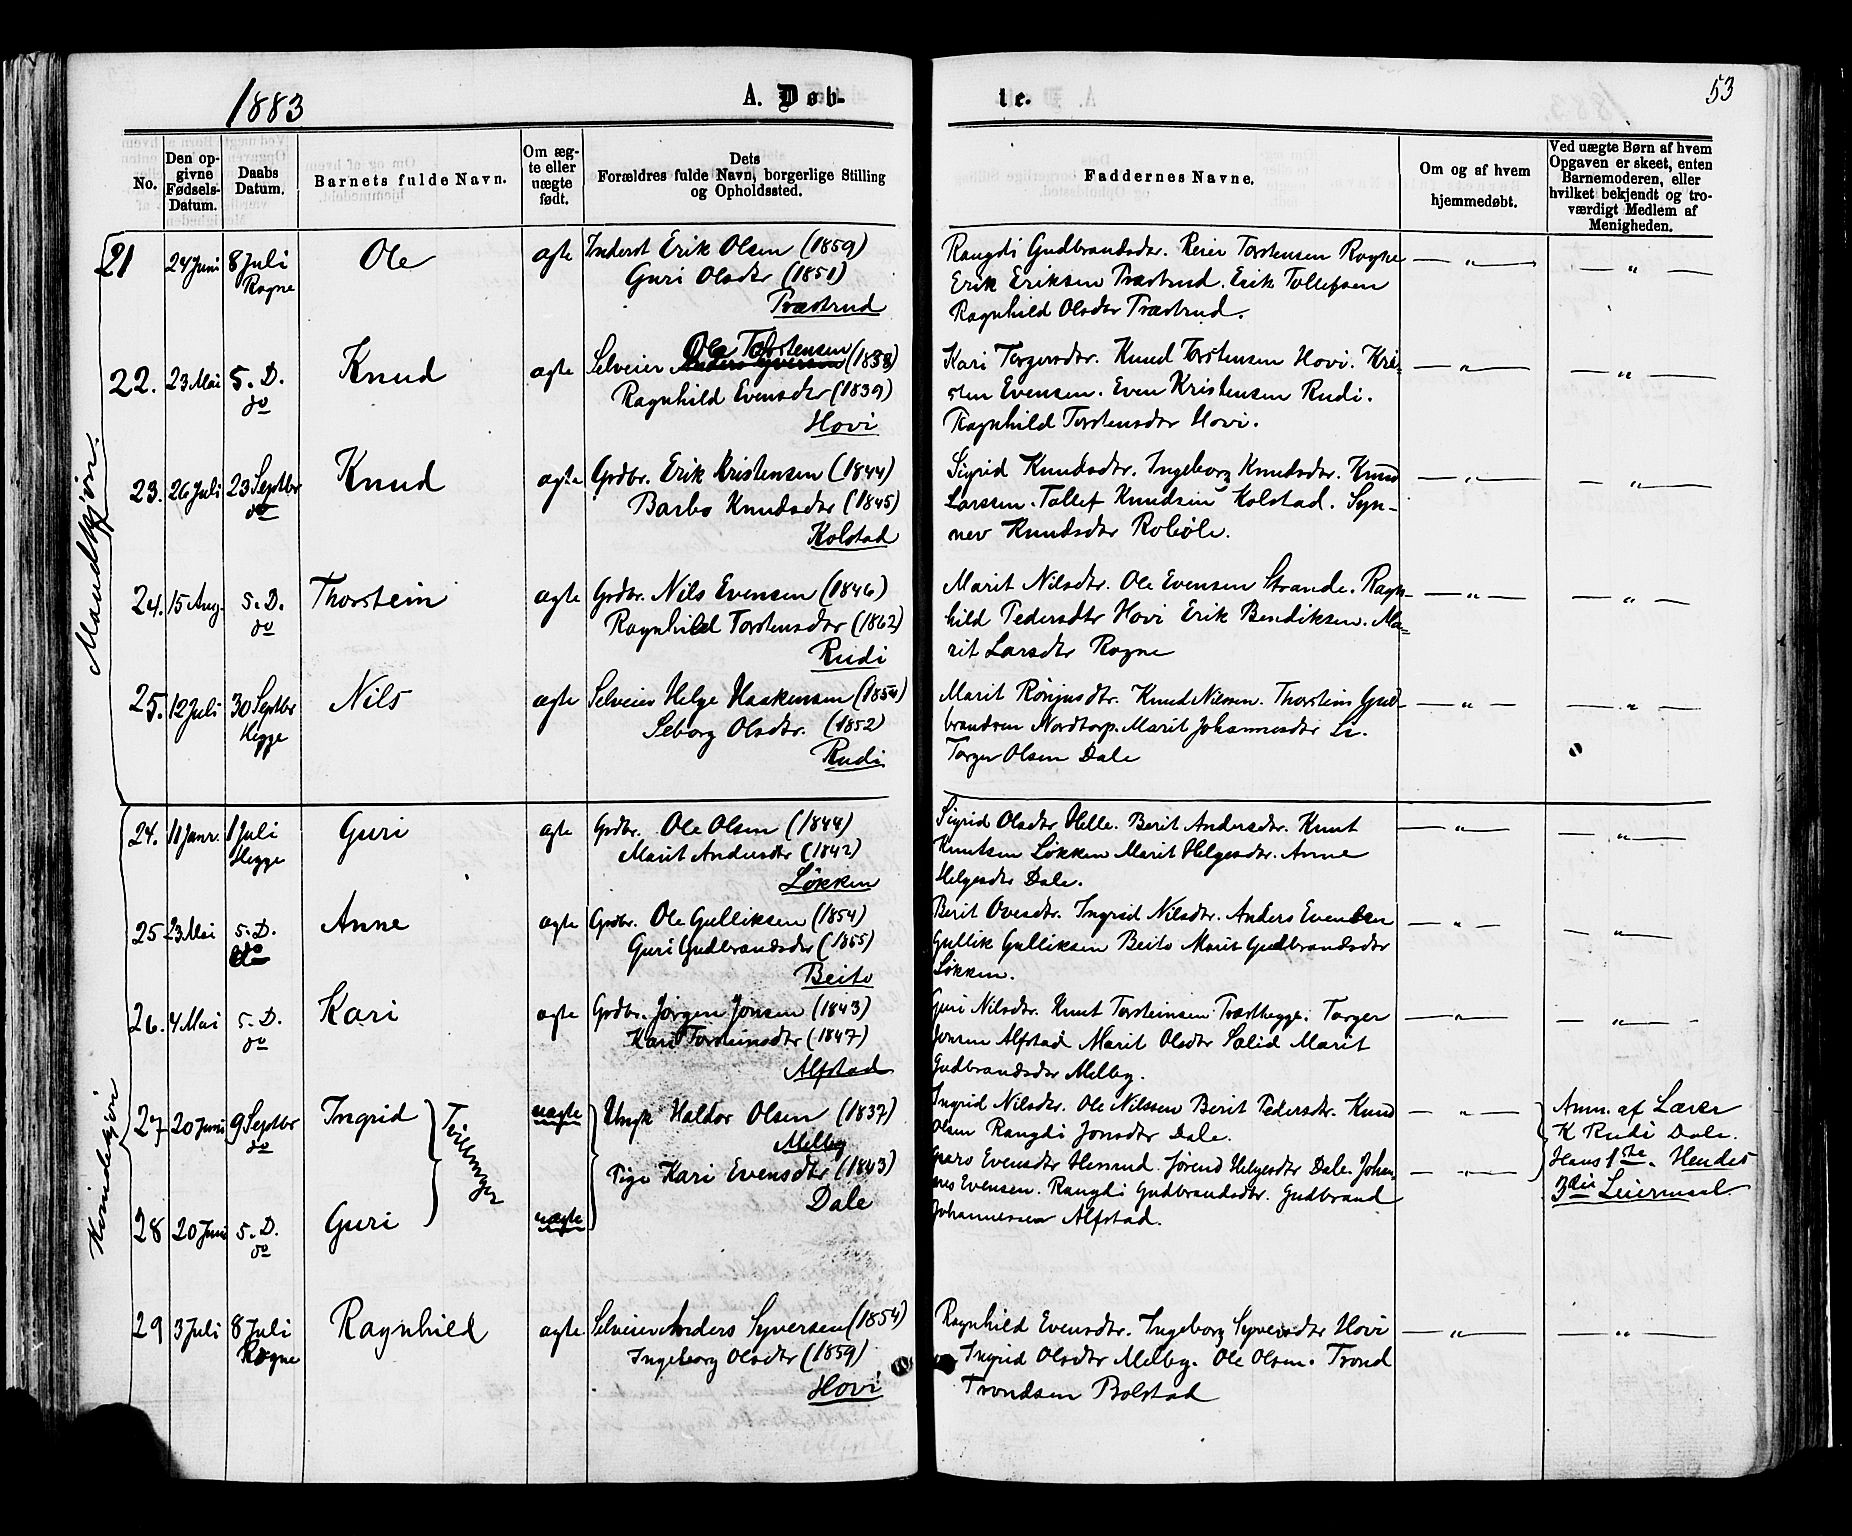 1883
A. Døb-
te.
53
No.
Den op-
givne
Fødsels-
Datum.
Daabs
Datum.
Barnets fulde Navn.
Om æg-
te eller
uægte
født.
Dets
Forældres fulde Navn, borgerlige Stilling
og Opholdssted.
Faddernes Navne.
Om og af hvem
hjemmedøbt.
Ved uægte Børn af hvem
Opgaven er skeet, enten
Barnemoderen, eller
hvilket bekjendt og tro-
værdigt Medlem af
Menigheden.
Mandkjøn.
21 24 Juni 8 Juli Ole ægte Inderst Erik Olsen (1859)
Rogne Guri Olsdtr (1851)
Træstrud
Rangdi Gudbrandsdtr. Reier Torstensen Rogne — " —
Erik Eriksen Træstrud. Erik Tollefsen
Ragnhild Olsdtr Træstrud.
22. 23 Mai 5. D. Knud ægte Selveier Ole Torstensen (1838)
do Ragnhild Evensdtr (1839)
Hovi
Kari Torgersdtr. Knud Torstensen Hovi. Kri- — " —
sten Evensen. Even Kristensen Rudi.
Ragnhild Torstensdtr Hovi.
23. 26 Juli 23 Septbr Knud ægte Grdbr. Erik Kristensen (1844)
do Barbo Knudsdtr (1845)
Kolstad
Sigrid Knudsdtr. Ingeborg Knudsdtr. Knud — " —
Larsen. Tollef Knudsen Kolstad. Syn-
nev Knudsdtr Robøle.
24. 15 Aug. 5. D. Thorstein ægte Grdbr. Nils Evensen (1846)
do Ragnhild Torstensdtr (1862)
Rudi
Marit Nilsdtr. Ole Evensen Strande. Ragn- — " —
hild Pedersdtr Hovi Erik Bendiksen. Ma-
rit Larsdtr Rogne
25. 12 Juli 30 Septbr Nils ægte Selveier Helge Haakensen (1854)
Hegge Seborg Olsdtr. (1852)
Rudi
Marit Rønjusdtr. Knud Nilssen. Thorstein Gud- — " —
brandsen Nordtorp. Marit Johannesdtr Li.
Torger Olsen Dale
Kvindekjøn
24. 11 Janr. 1 Juli Guri ægte Grdbr. Ole Olsen (1844)
Hegge Marit Andersdtr (1842)
Løkken
Sigrid Olsdtr Helle. Berit Andersdtr. Knut — " —
Knutsen Løkken Marit Helgesdtr. Anne
Helgesdtr Dale.
25 23 Mai 5. D. Anne ægte Grdbr. Ole Gulliksen (1854)
do Guri Gudbrandsdtr (1855)
Beito
Berit Ovesdtr. Ingrid Nilsdtr. Anders Evensen — " —
Gullik Gulliksen Beito Marit Gudbrandsdtr
Løkken.
26. 4 Mai 5. D. Kari ægte Grdbr. Jørgen Jonsen (1843)
do Kari Torsteinsdtr (1847)
Alfstad
Guri Nilsdtr. Knut Torsteinsen Træthegge. Torger — " —
Jonsen Alfstad Marit Olsdtr Sælid Marit
Gudbrandsdtr Melby.
27 20 Juni 9 Septbr Ingrid Tvillinger uægte Ungk Haldor Olsen (1837)
do Melby
Pige Kari Evensdtr (1843)
Dale
Ingrid Nilsdtr. Ole Nilssen Berit Pedersdtr. Knud — " —
Olsen Rangdi Jonsdtr Dale.
Anm. af Lærer
K Rudi Dale.
Hans 1ste. Hendes
3die Leiermaal.
28 20 Juni 5. D. Guri uægte
do
Evensdtr Hesrud. Jørend Helgesdtr Dale. Johan- — " —
nes Evensen. Rangdi Gudbrandsdtr. Gudbrand
Johannessen Alfstad.
29 3 Juli 8 Juli Ragnhild ægte Selveier Anders Syversen (1854)
Rogne Ingeborg Olsdtr (1859)
Hovi
Ragnhild Evensdtr. Ingeborg Syversdtr Hovi — " —
Ingrid Olsdtr Melby. Ole Olsen. Trond
Trondsen Bolstad